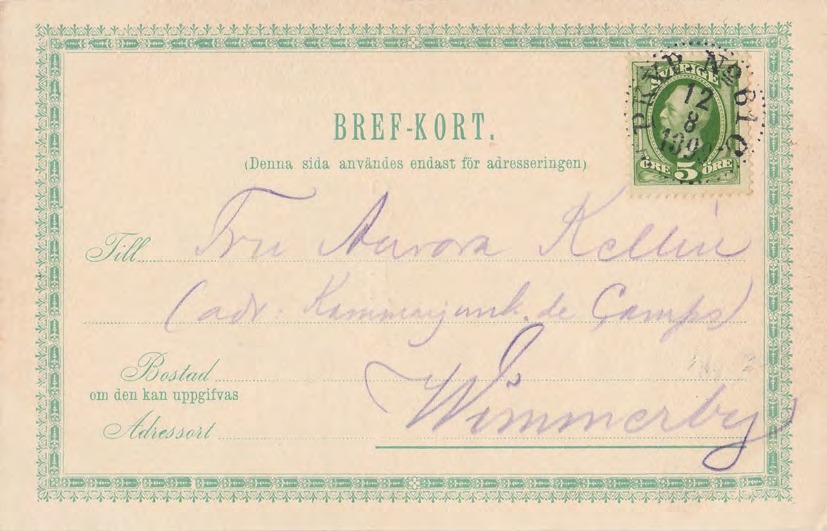 BREF-KORT.
(Denna sida användes endast för adresseringen)
PKXP. No 61
12
8
SVERIGE
5
ÖRE
Till Fru Aurora Kellin
(adr: Kammarjunk. de Camps)
Bostad
om den kan uppgifvas
Adressort Wimmerby